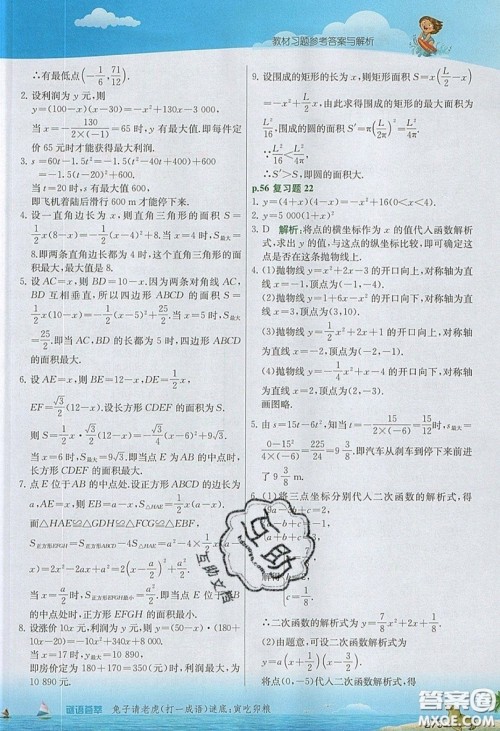 教材习题参考答案与解析
∴有最低点(-1/6, 71/12).
2. 设利润为 y 元,则
y=(100-x)(x-30)=-x²+130x-3 000,
当 x=-130/(2×(-1))=65 时, y 有最大值. 即每件定
价 65 元时才能使获得最大利润.
3. s=60t-1.5t²=-1.5(t²-40t+400)+600
=-1.5(t-20)²+600.
当 t=20 时, s 有最大值 600.
即飞机着陆后滑行 600 m 才能停下来.
4. 设一直角边长为 x, 则直角三角形的面积 S=
1/2x(8-x)=-1/2x²+4x=-1/2(x-4)²+8.
当 x=-4/(2×(-1/2))=4 时, S最大=8.
即两条直角边长都为 4 时, 这个直角三角形的面
积最大, 最大值是 8.
5. 设 AC=x, 则 BD=10-x. 因为两对角线 AC,
BD 互相垂直, 所以四边形 ABCD 的面积 S=
1/2x(10-x)=-1/2x²+5x=-1/2(x-5)²+25/2.
即当 AC, BD 的长都为 5 时, 四边形 ABCD 的
面积最大.
6. 设 AE=x, 则 BE=12-x, DE=1/2x,
EF=√3/2(12-x). 设长方形 CDEF 的面积为 S,
则 S=1/2x·√3/2(12-x)=-√3/4(x-6)²+9√3.
当 x=6 时, S最大=9√3. 即点 E 在 AB 中点处时,
CDEF 的面积最大.
7. 点 E 位于 AB 的中点处. 设正方形 ABCD 的边长为
a, AE=x, 则 BE=a-x, S△HAE=1/2x(a-x).
由 △HAE≌△GDH≌△FCG≌
S正方形EFGH=S正方形ABCD-4S△HAE=a²-4×1/2x(a-
当 x=1/2a 时, S正方形EFGH最小=1/2a². 即当点 E 位于
AB 的中点处时, 正方形 EFGH 的面积最小.
8. 设涨价 10x 元, 利润为 y 元, 则 y=(50-x)·(180+
10x-20)=-10x²+340x+8 000.
当 x=17 时, y最大=10 890.
即房价定为 180+170=350(元)时, 利润最大.
9. 设围成的矩形的长为 x, 则矩形面积 S=x(L/2-x)
=-x²+L/2x, 由此求得围成的矩形的最大面积为
L²/16, 围成的圆的面积 S′=π(L/2π)²=L²/4π.
∵L²/16<L²/4π,
∴S′>S, 即圆的面积大.
p.56 复习题 22
1. y=(4+x)(4-x)=-x²+16(0<x<4).
2. y=5 000(1+x)².
3. D 解析:将点的横坐标作为 x 的值代入函数解析
式, y 的值应与这点的纵坐标比较, 即可确定这点
是否在这条抛物线上.
4. (1)抛物线 y=x²+2x-3 的开口向上, 对称轴为直
线 x=-1, 顶点为(-1,-4).
(2)抛物线 y=1+6x-x² 的开口向下, 对称轴为
直线 x=3, 顶点为(3,10).
(3)抛物线 y=1/2x²+2x+1 的开口向上, 对称轴
为直线 x=-2, 顶点为(-2,-1).
(4)抛物线 y=-1/4x²+x-4 的开口向下, 对称轴为
直线 x=2, 顶点为(2,-3).
画图略.
5. 由 s=15t-6t², 知当 t=-15/(2×(-6))=15/12 时, s最大
=(0-15²)/(4×(-6))=225/24=9 3/8. 即汽车从刹车到停下来前进
了 9 3/8 m.
6. (1)将三点坐标分别代入二次函数的解析式, 得
∴二次函数的解析式为 y=7/8x²+2x+1/8.
(2)由题意, 可设二次函数的解析式为
将点的坐标代入解析式,
互助
互助文档
谜语荟萃 兔子请老虎(打一成语)谜底:寅吃卯粮
答案圈
MXQE.COM